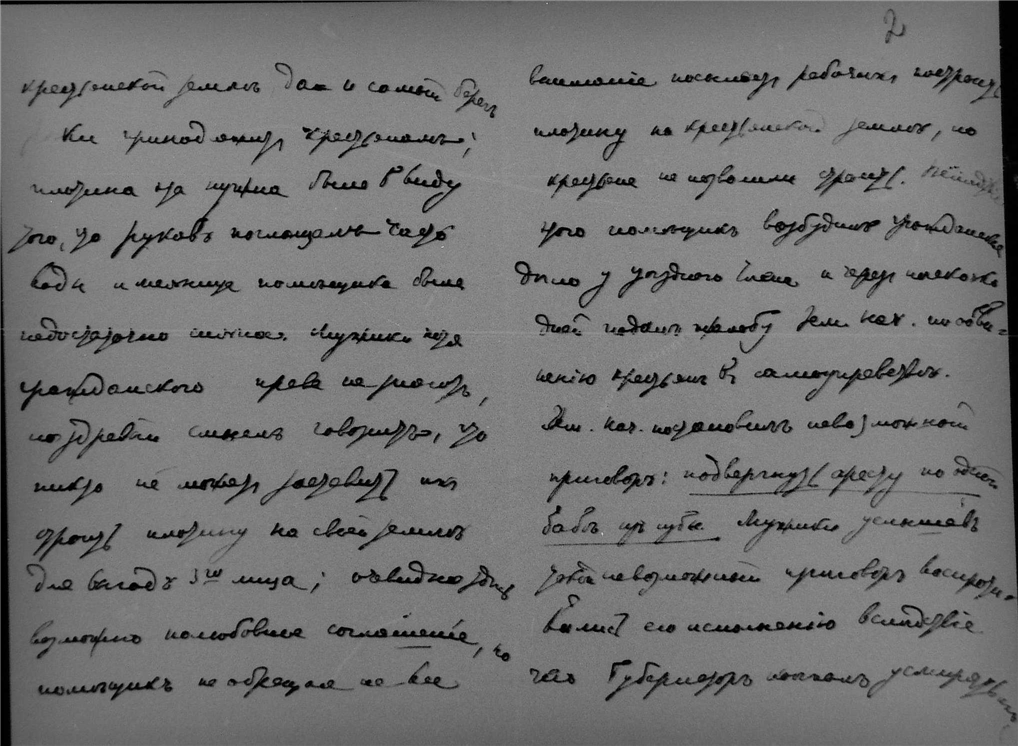 2
крестьянской земли да и самый берег
Ки принадлежит крестьянамъ;
плотина эта нужна была въ виду
того, что рукавъ поглощалъ часть
воды и мельница помѣщика была
недостаточно сильна. Мужики хотя
гражданского права не знаютъ,
но здравый смыслъ говоритъ, что
никто не можетъ заставить ихъ
строить плотину на своей землѣ
для выгодъ 3го лица; очевидно здѣсь
возможно полюбовное соглашеніе, но
помѣщикъ не обращая на все
вниманіе посылаетъ рабочихъ построить
плотину на крестьянской землѣ, но
крестьяне не позволили строить.
того помѣщикъ возбудилъ гражданское
дѣло у уѣзднаго члена и черезъ несколько
дней подалъ жалобу Зем. нач. по обви-
ненію крестьянъ въ самоуправствѣ.
Зем. нач. постановилъ невозможный
приговоръ: подвергнуть аресту по одной
бабѣ изъ избы Мужики услышавъ
такой невозможный приговоръ воспроти-
вились его исполненію вслѣдствіе
чего Губернаторъ поѣхалъ усмирять ихъ